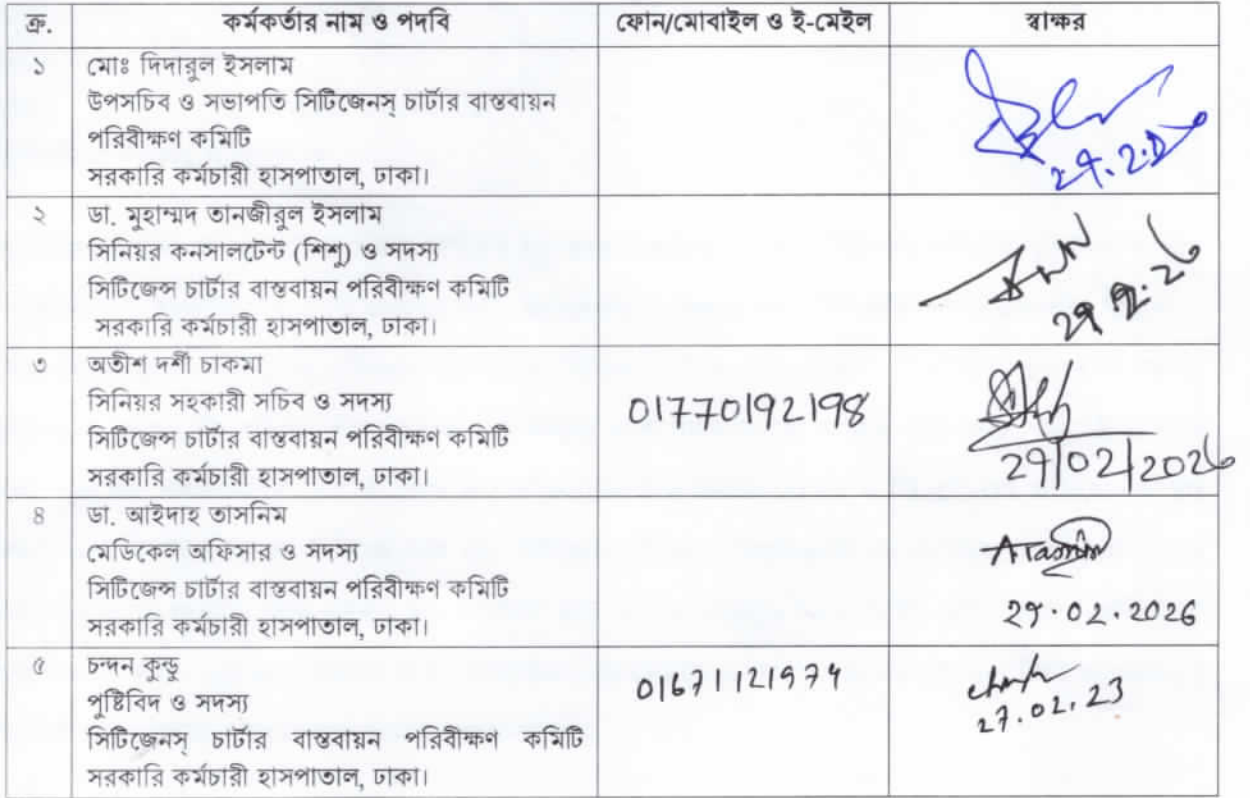 ক্র. কর্মকর্তার নাম ও পদবি ফোন/মোবাইল ও ই-মেইল স্বাক্ষর
১ মোঃ দিদারুল ইসলাম
উপসচিব ও সভাপতি সিটিজেনস্ চার্টার বাস্তবায়ন
পরিবীক্ষণ কমিটি
সরকারি কর্মচারী হাসপাতাল, ঢাকা।
২ ডা. মুহাম্মদ তানজীরুল ইসলাম
সিনিয়র কনসালটেন্ট (শিশু) ও সদস্য
সিটিজেন্স চার্টার বাস্তবায়ন পরিবীক্ষণ কমিটি
সরকারি কর্মচারী হাসপাতাল, ঢাকা।
৩ অতীশ দর্শী চাকমা
সিনিয়র সহকারী সচিব ও সদস্য
সিটিজেন্স চার্টার বাস্তবায়ন পরিবীক্ষণ কমিটি
সরকারি কর্মচারী হাসপাতাল, ঢাকা।
01770192198
29/02/2026
৪ ডা. আইদাহ তাসনিম
মেডিকেল অফিসার ও সদস্য
সিটিজেন্স চার্টার বাস্তবায়ন পরিবীক্ষণ কমিটি
সরকারি কর্মচারী হাসপাতাল, ঢাকা।
29.02.2026
৫ চন্দন কুন্ডু
পুষ্টিবিদ ও সদস্য
সিটিজেনস্ চার্টার বাস্তবায়ন পরিবীক্ষণ কমিটি
সরকারি কর্মচারী হাসপাতাল, ঢাকা।
01671121974
27.02.23